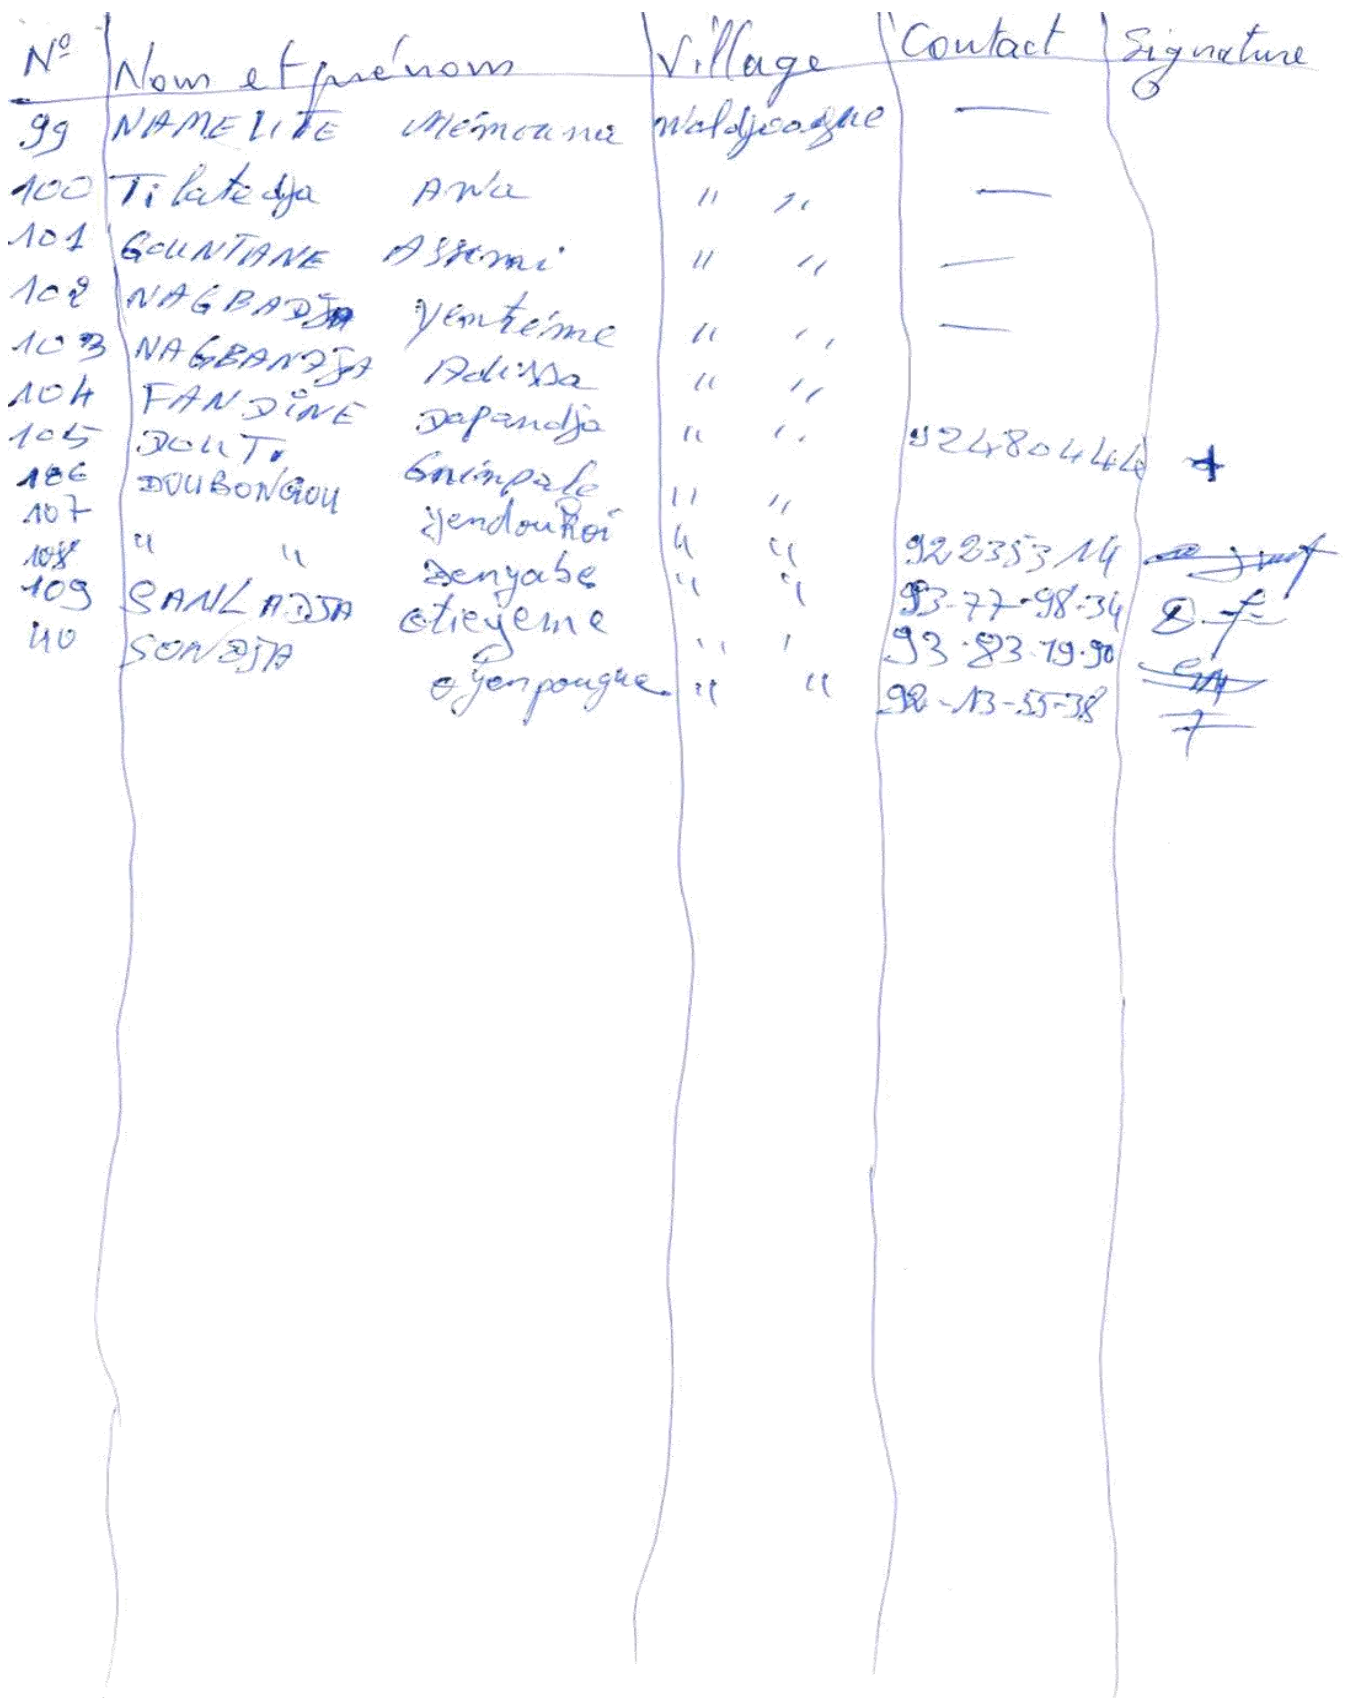 N° Nom et prénom Village Contact Signature
99 NAMELITE Mémouna Waldjoague —
100 Tilatedja AWa " " —
101 GOUNTANE ASSemi " " —
102 NAGBADJA Yentéme " " —
103 NAGBANDJA Adissa " "
104 FANDINE Dapandja " " 92480444 +
105 DOUTI Gnimpale " "
106 DOUBONGOU Yendoukoi " " 92235314
107 " " Denyabe " " 93-77-98-34
108
109 SANLADJA otieyeme " " 93.83.19.90
110 SONDJA oyenpougue " " 92-13-55-38